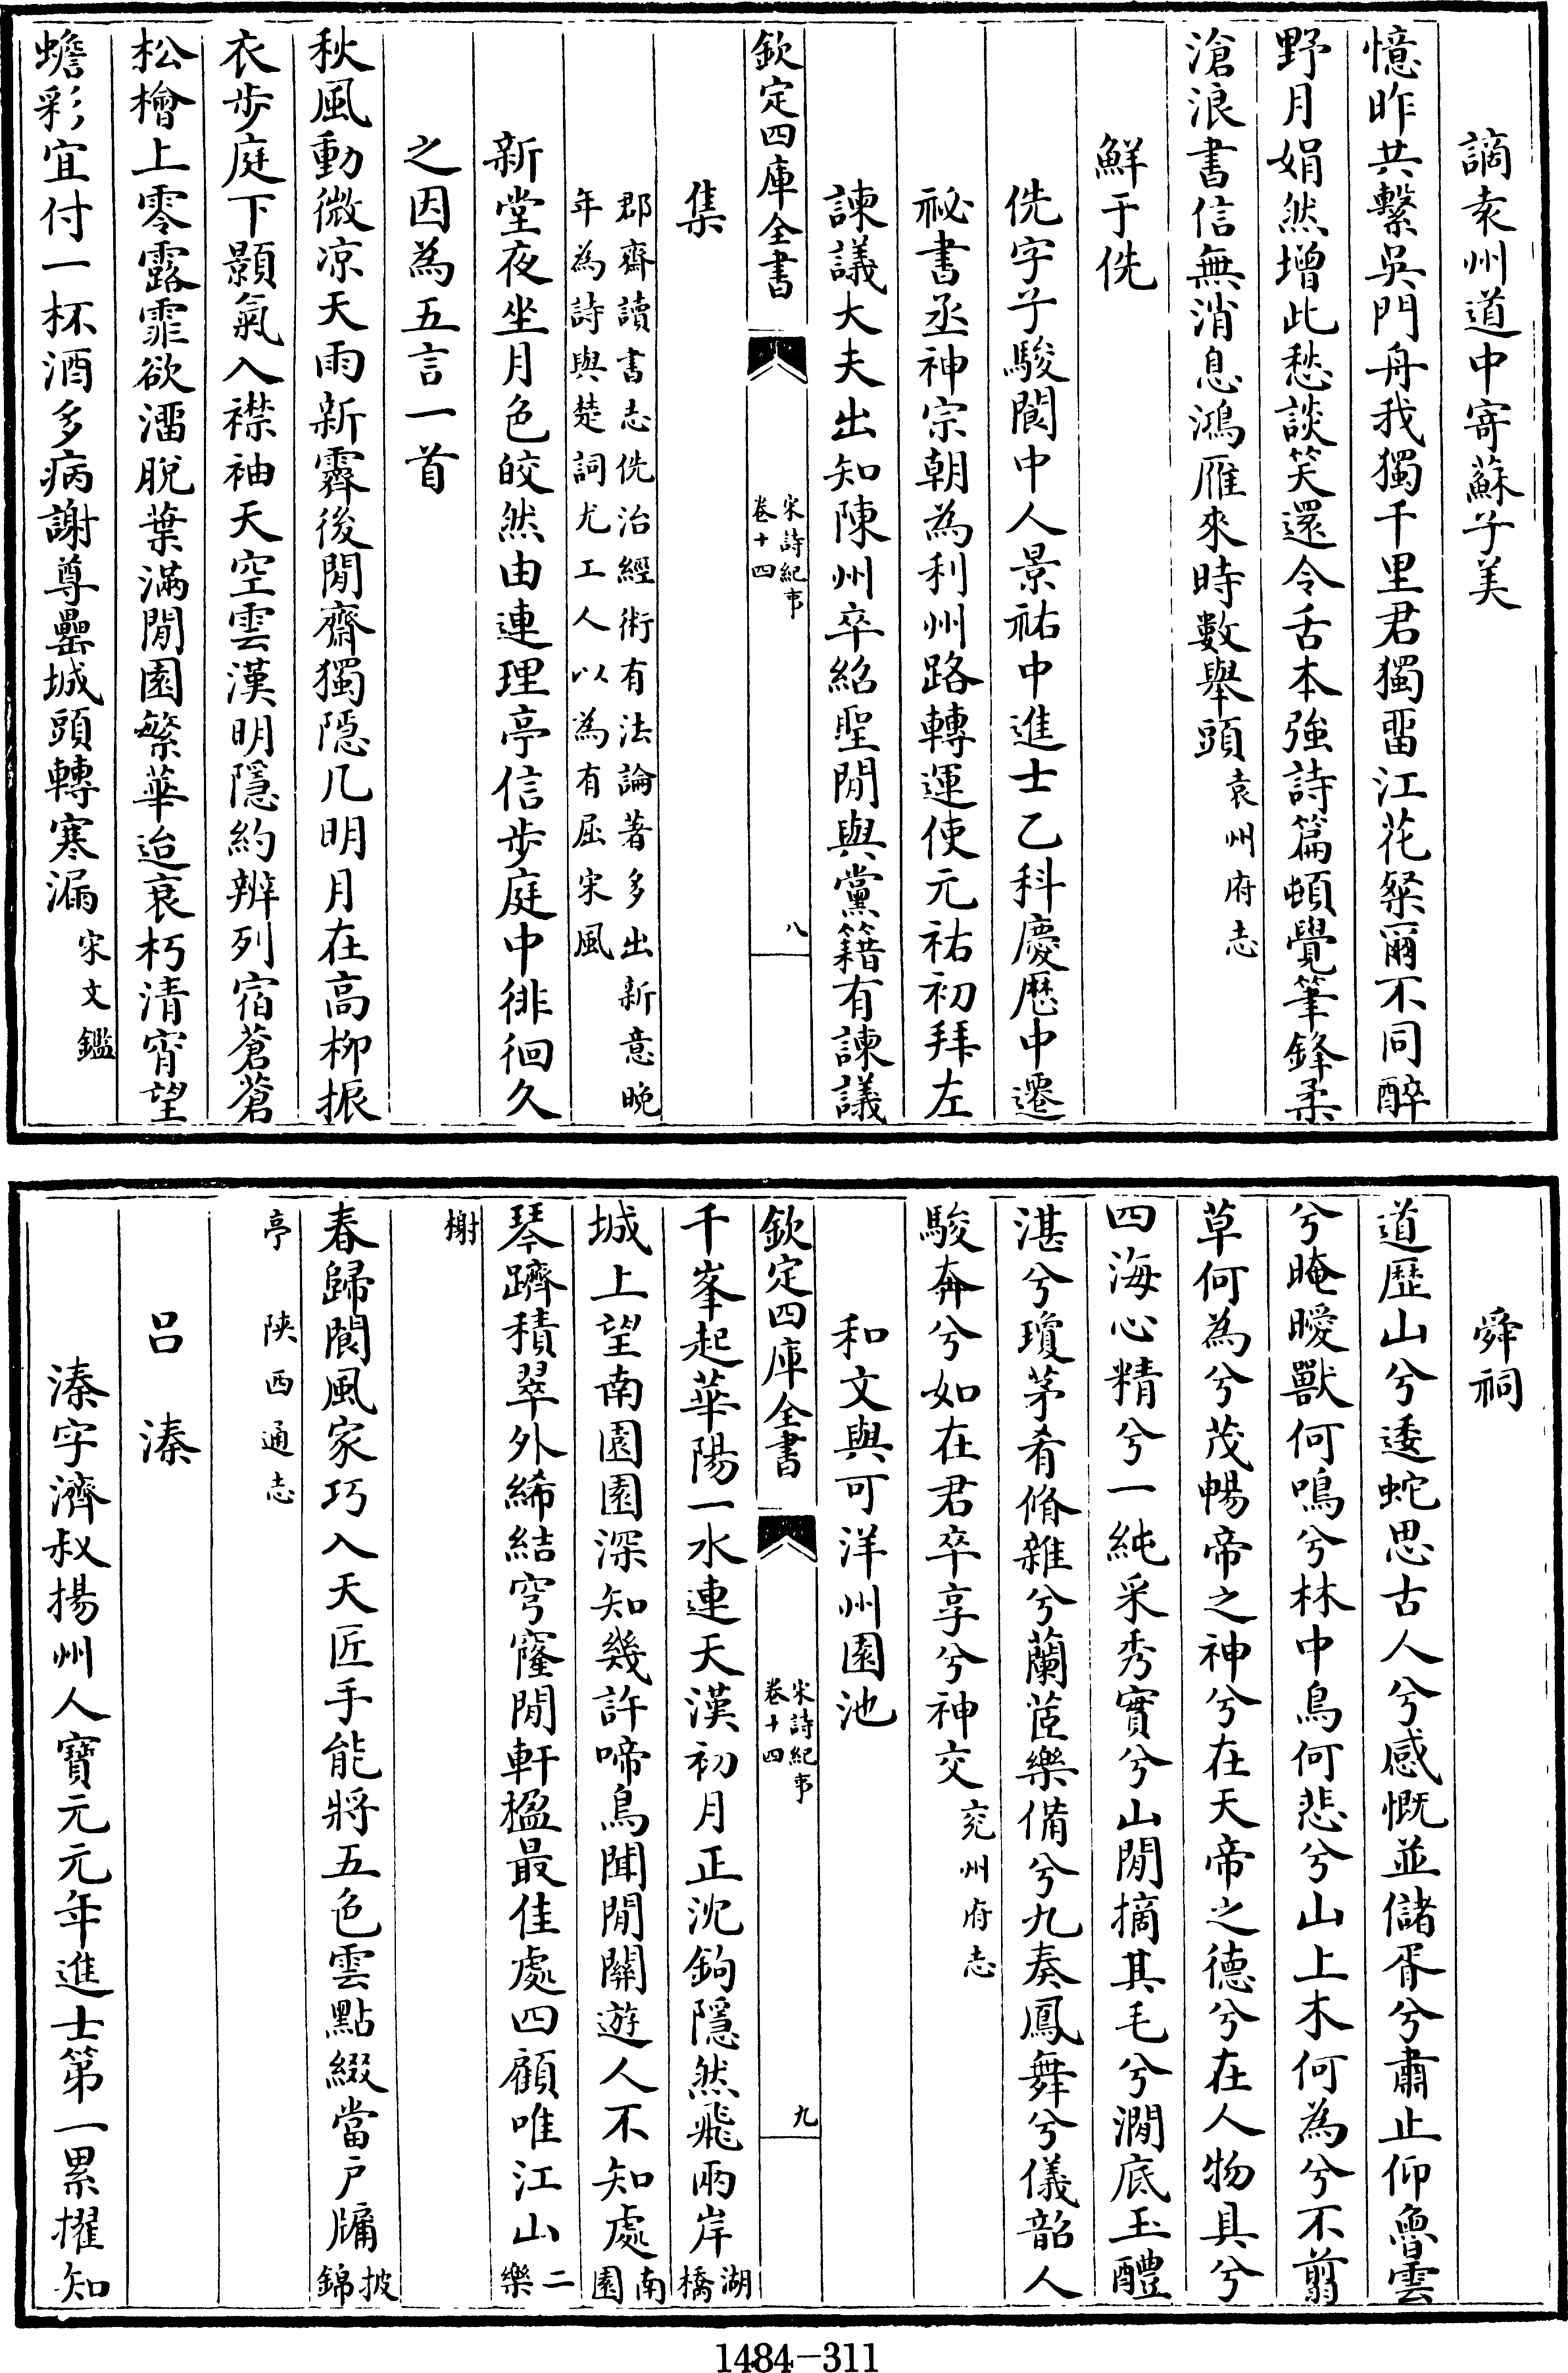 謫袁州道中寄蘇子美
憶昨共繫吳門舟我獨千里君獨畱江花粲爾不同醉
野月娟然增此愁談笑還令舌本強詩篇頓覺筆鋒柔
滄浪書信無消息鴻雁來時數舉頭袁州府志
鮮于侁
侁字子駿閬中人景祐中進士乙科慶厯中遷
祕書丞神宗朝為利州路轉運使元祐初拜左
諫議大夫出知陳州卒紹聖閒與黨籍有諫議
欽定四庫全書
宋詩紀事
卷十四
八
集
郡齋讀書志侁治經術有法論著多出新意晚
年為詩與楚詞尤工人以為有屈宋風
新堂夜坐月色皎然由連理亭信步庭中徘徊久
之因為五言一首
秋風動微涼天雨新霽後閒齋獨隱几明月在高柳振
衣步庭下顥氣入襟袖天空雲漢明隱約辨列宿蒼蒼
松檜上零露霏欲霤脫葉滿閒園繁華迨衰朽清宵望
蟾彩宜付一杯酒多病謝尊罍城頭轉寒漏宋文鑑
舜祠
道歷山兮逶蛇思古人兮感慨並儲胥兮肅止仰魯雲
兮晻曖獸何鳴兮林中鳥何悲兮山上木何為兮不翦
草何為兮茂暢帝之神兮在天帝之德兮在人物具兮
四海心精兮一純采秀實兮山閒摘其毛兮澗底玉醴
湛兮瓊茅肴脩雜兮蘭茝樂備兮九奏鳳舞兮儀韶人
駿奔兮如在君卒享兮神交兖州府志
和文與可洋州園池
欽定四庫全書
宋詩紀事
卷十四
九
千峯起華陽一水連天漢初月正沈鉤隱然飛兩岸湖橋
城上望南園園深知幾許啼鳥聞閒關遊人不知處南園
琴躋積翠外絺結穹窿閒軒楹最佳處四顧唯江山二樂
榭
春歸閬風家巧入天匠手能將五色雲點綴當戶牖披錦
亭 陝西通志
呂溱
溱字濟叔揚州人寶元元年進士第一累擢知
1484-311